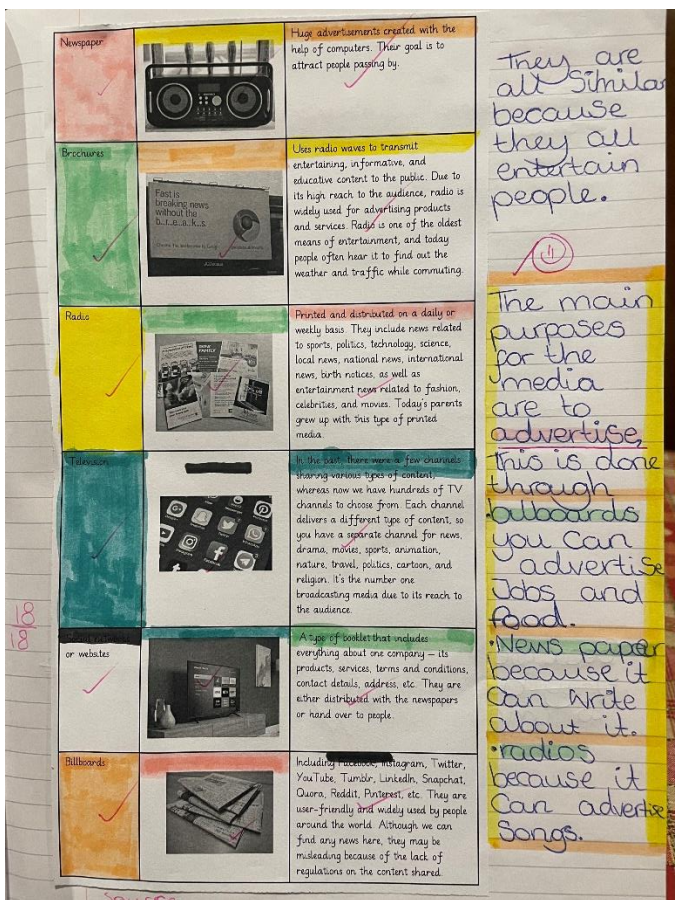 Newspaper
Huge advertisements created with the
help of computers. Their goal is to
attract people passing by.
Brochures
Fast is
breaking news
without the
b...r...e...a...k...s
Uses radio waves to transmit
entertaining, informative, and
educative content to the public. Due to
its high reach to the audience, radio is
widely used for advertising products
and services. Radio is one of the oldest
means of entertainment, and today
people often hear it to find out the
weather and traffic while commuting.
Radio
Printed and distributed on a daily or
weekly basis. They include news related
to sports, politics, technology, science,
local news, national news, international
news, birth notices, as well as
entertainment news related to fashion,
celebrities, and movies. Today's parents
grew up with this type of printed
media.
Television
In the past, there were a few channels
sharing various types of content,
whereas now we have hundreds of TV
channels to choose from. Each channel
delivers a different type of content, so
you have a separate channel for news,
drama, movies, sports, animation,
nature, travel, politics, cartoon, and
religion. It's the number one
broadcasting media due to its reach to
the audience.
or websites
A type of booklet that includes
everything about one company – its
products, services, terms and conditions,
contact details, address, etc. They are
either distributed with the newspapers
or hand over to people.
Billboards
Including Facebook, Instagram, Twitter,
YouTube, Tumblr, LinkedIn, Snapchat,
Quora, Reddit, Pinterest, etc. They are
user-friendly and widely used by people
around the world. Although we can
find any news here, they may be
misleading because of the lack of
regulations on the content shared.
They are
all Similar
because
they all
entertain
people.
The main
purposes
for the
media
are to
advertise,
this is done
through
·bilboards
you can
advertise
Jobs and
food.
·News paper
because it
Can Write
about it.
·radios
because it
Can advertise
Songs.
18/18